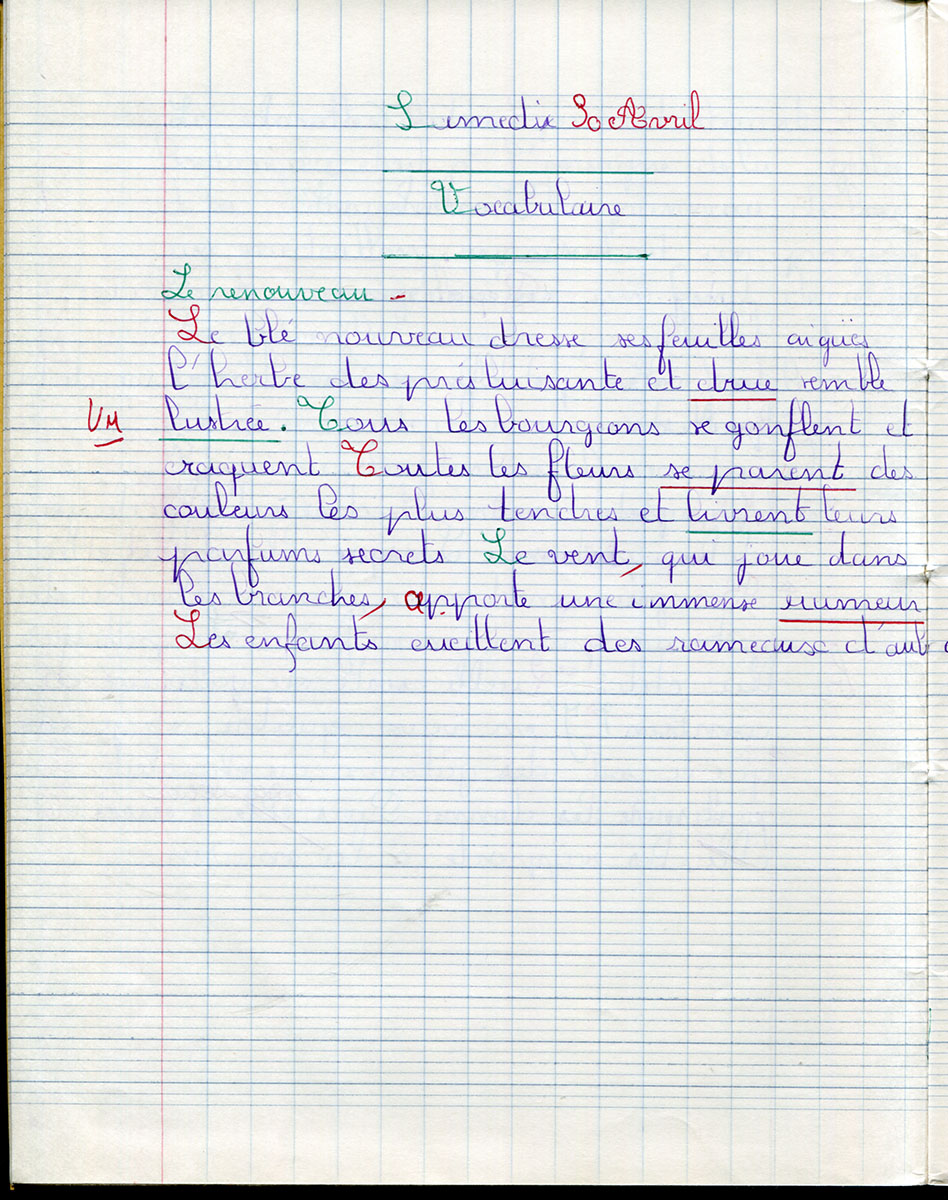 Lunedix 30 Avril
Vocabulaire
Le renouveau -
Le blé nouveau dresse ses feuilles aiguës
l'herbe des prés luisante et drue semble
VM lustrée. Tous les bourgeons se gonflent et
craquent Toutes les fleurs se parent des
couleurs les plus tendres et livrent leurs
parfums secrets Le vent, qui joue dans
les branches, apporte une immense rumeur
Les enfants cueillent des rameaux d'aub